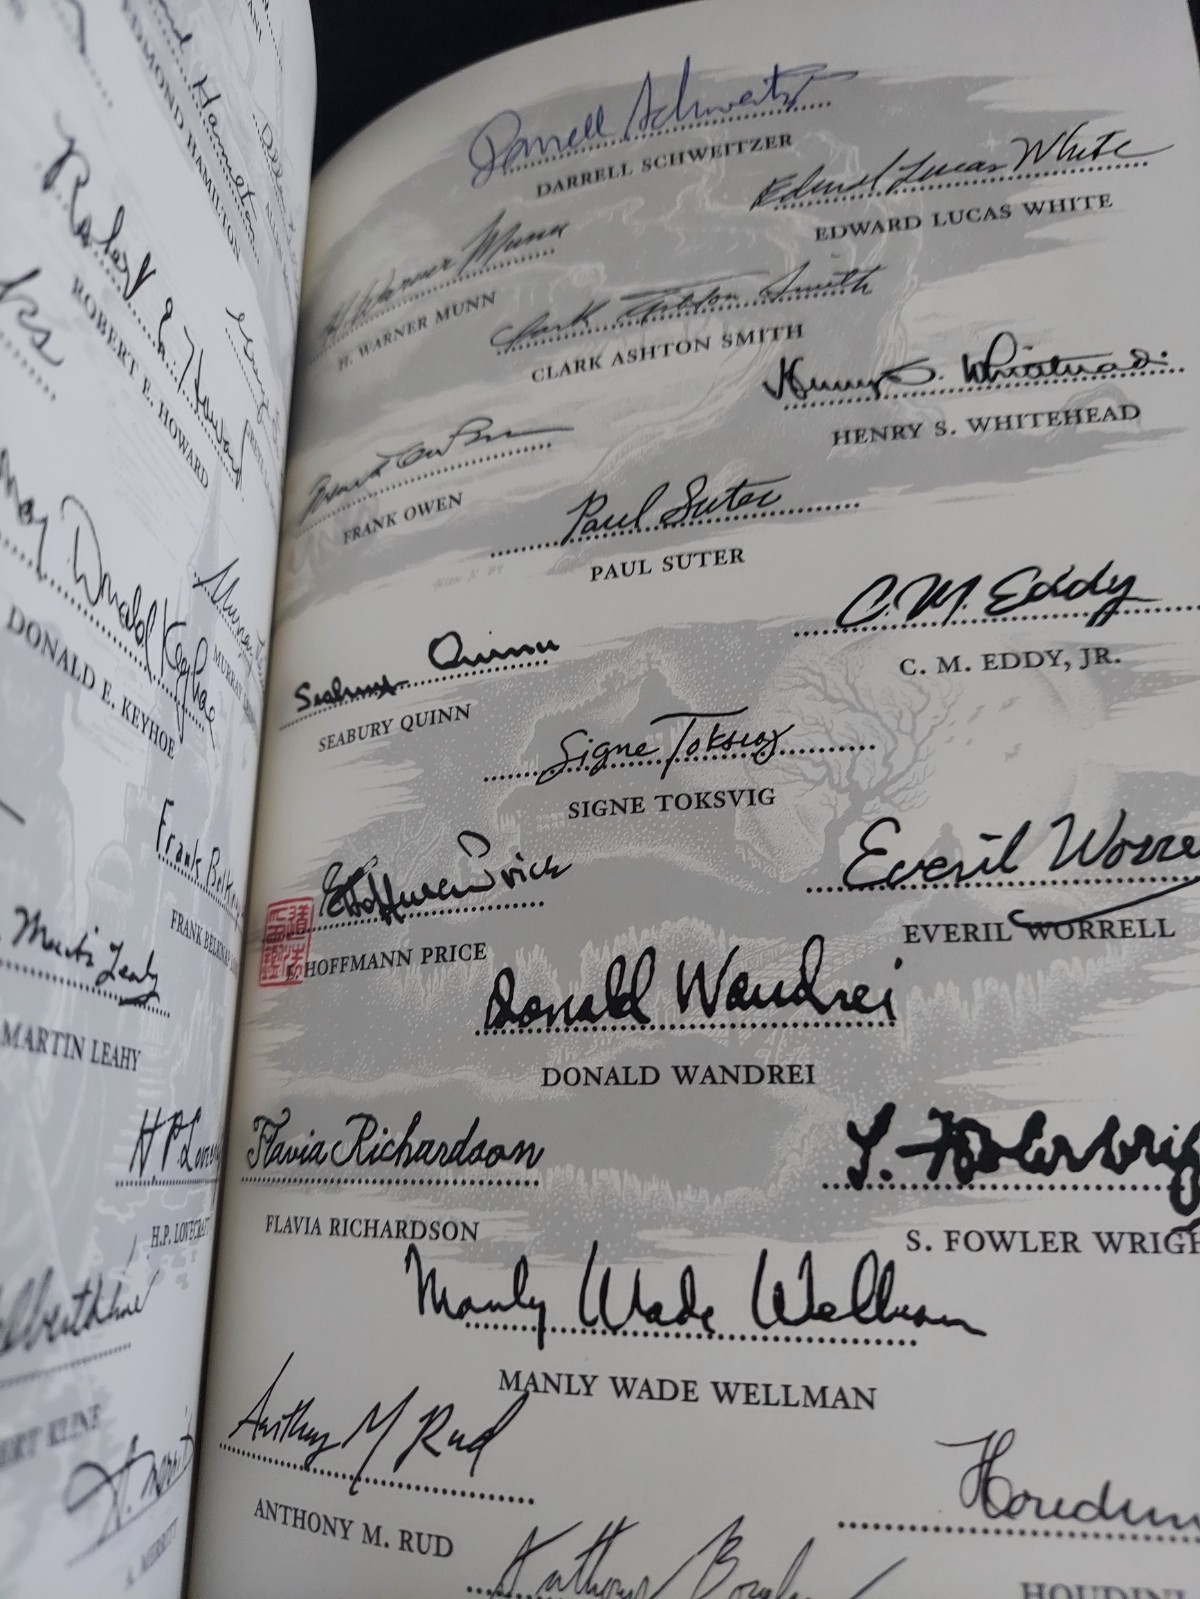 EDMOND HAMILTON
Robert E. Howard
ROBERT E. HOWARD
Donald Keyhoe
DONALD E. KEYHOE
MURRAY
Frank Belkn
FRANK BELKNAP
Martin Leahy
MARTIN LEAHY
H P Lovec
H.P. LOVECRAFT
KLINE
A. Merritt
A. MERRITT
Darrell Schweitzer
DARRELL SCHWEITZER
Edward Lucas White
EDWARD LUCAS WHITE
H. Warner Munn
H. WARNER MUNN
Clark Ashton Smith
CLARK ASHTON SMITH
Henry S. Whitehead
HENRY S. WHITEHEAD
Frank Owen
FRANK OWEN
Paul Suter
PAUL SUTER
C. M. Eddy
C. M. EDDY, JR.
Seabury Quinn
SEABURY QUINN
Signe Toksvig
SIGNE TOKSVIG
E. Hoffmann Price
HOFFMANN PRICE
Everil Worre
EVERIL WORRELL
Donald Wandrei
DONALD WANDREI
Flavia Richardson
FLAVIA RICHARDSON
S. Fowler Wrig
S. FOWLER WRIGH
Manly Wade Wellman
MANLY WADE WELLMAN
Anthony M Rud
ANTHONY M. RUD
Houdini
HOUDINI